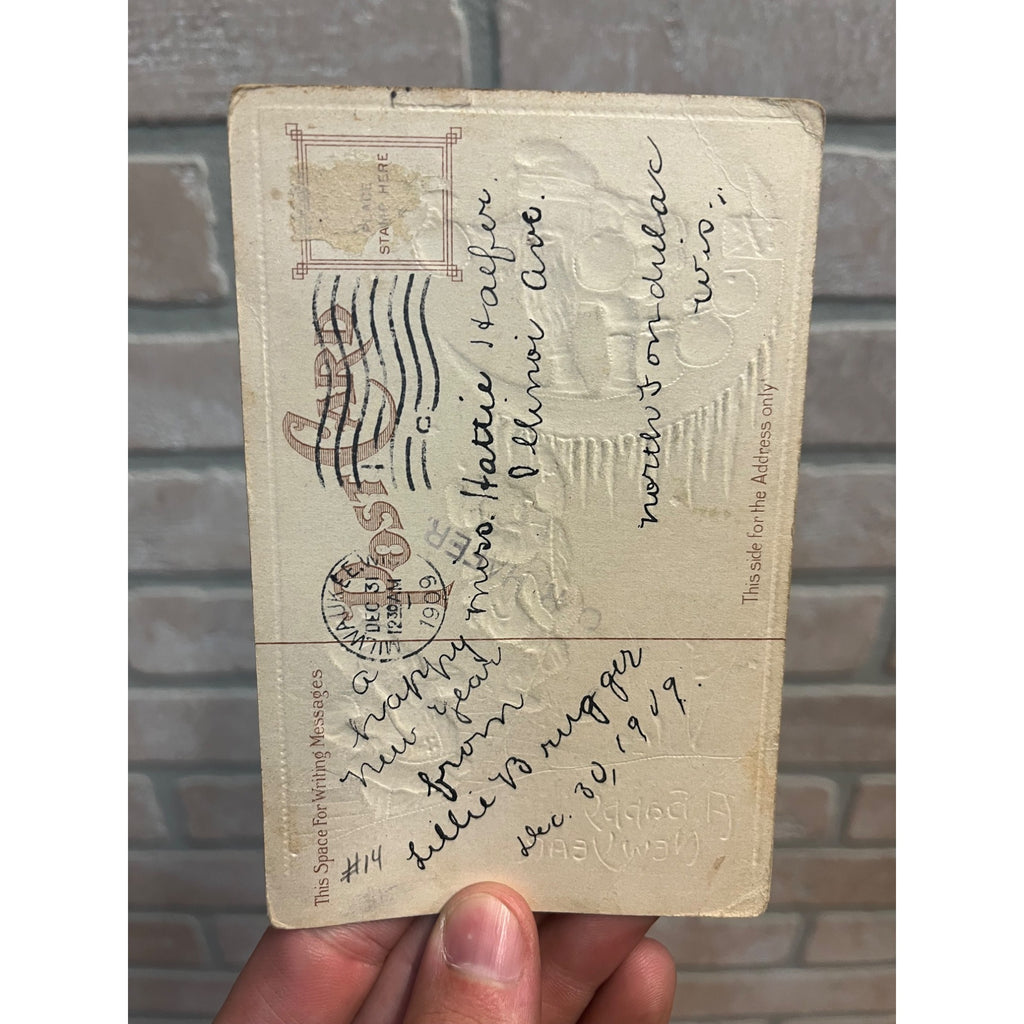 This Space For Writing Messages
a
happy
new year
from
Lillie Brugger
Dec. 30, 1909.
#14
POST CARD
PLACE
STAMP HERE
MILWAUKEE,
DEC 31
12 30 AM
1909
C
miss. Hattie Halfer.
Illinoi Ave.
north Fondulac
Wis.
This side for the Address only
A Happy
New Year